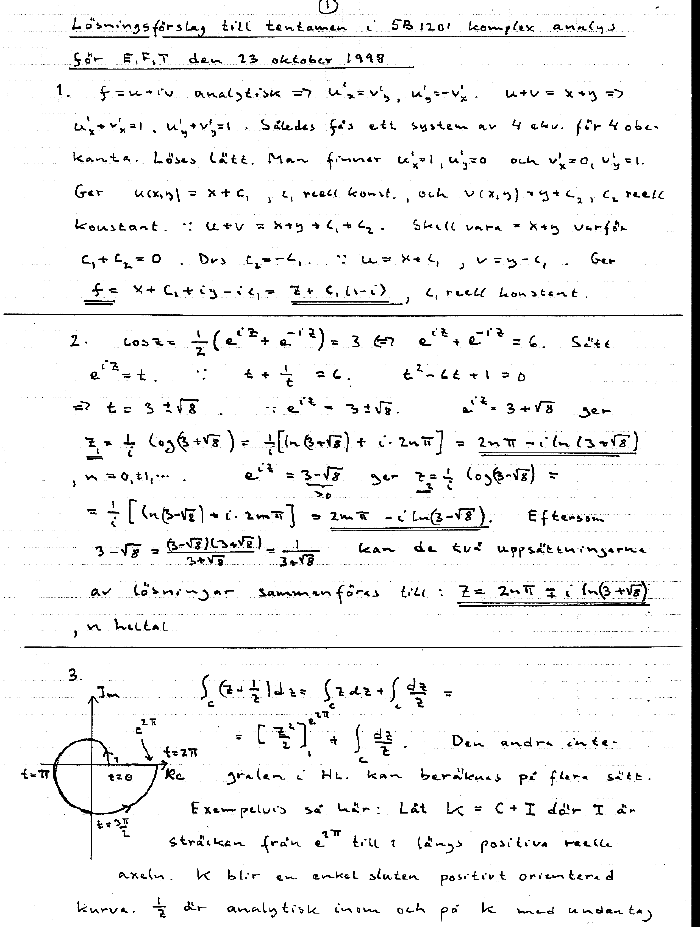 ①
Lösningsförslag till tentamen i 5B1201 komplex analys
för E, F, T den 23 oktober 1998
1. f = u + iv analytisk => u'x = v'y, u'y = -v'x. u+v = x+y =>
u'x + v'x = 1, u'y + v'y = 1. Således fås ett system av 4 ekv. för 4 obe-
kanta. Löses lätt. Man finner u'x = 1, u'y = 0 och v'x = 0, v'y = 1.
Ger u(x,y) = x + c₁, c₁ reell konst., och v(x,y) = y + c₂, c₂ reell
konstant. ∵ u+v = x+y + c₁ + c₂. Skall vara = x+y varför
c₁ + c₂ = 0. Dvs c₂ = -c₁. ∵ u = x + c₁, v = y - c₁. Ger
f = x + c₁ + iy - ic₁ = z + c₁(1-i), c₁ reell konstant.
2. cos z = 1/2 (e^{iz} + e^{-iz}) = 3 <=> e^{iz} + e^{-iz} = 6. Sätt
e^{iz} = t. ∵ t + 1/t = 6. t² - 6t + 1 = 0
=> t = 3 ± √8. ∵ e^{iz} = 3 ± √8. e^{iz} = 3 + √8 ger
z₁ = 1/i log(3+√8) = 1/i [ln(3+√8) + i·2nπ] = 2nπ - i ln(3+√8)
, n = 0, ±1, ... e^{iz} = 3-√8 >0 ger z = 1/i log(3-√8) =
= 1/i [ln(3-√8) + i·2mπ] = 2mπ - i ln(3-√8). Eftersom
3-√8 = (3-√8)(3+√8)/(3+√8) = 1/(3+√8) kan de två uppsättningarna
av lösningar sammanföras till: z = 2nπ ∓ i ln(3+√8)
, n heltal
3. ∫_C (z + 1/z) dz = ∫_C z dz + ∫_C dz/z =
Im
e^{2π}
t=2π
t=π
t=0
Re
t=3π/2
= [z²/2]₁^{e^{2π}} + ∫_C dz/z. Den andra inte-
gralen i HL. kan beräknas på flera sätt.
Exempelvis så här: Låt K = C + I där I är
sträckan från e^{2π} till 1 längs positiva reella
axeln. K blir en enkel sluten positivt orienterad
kurva. 1/z är analytisk inom och på K med undantag